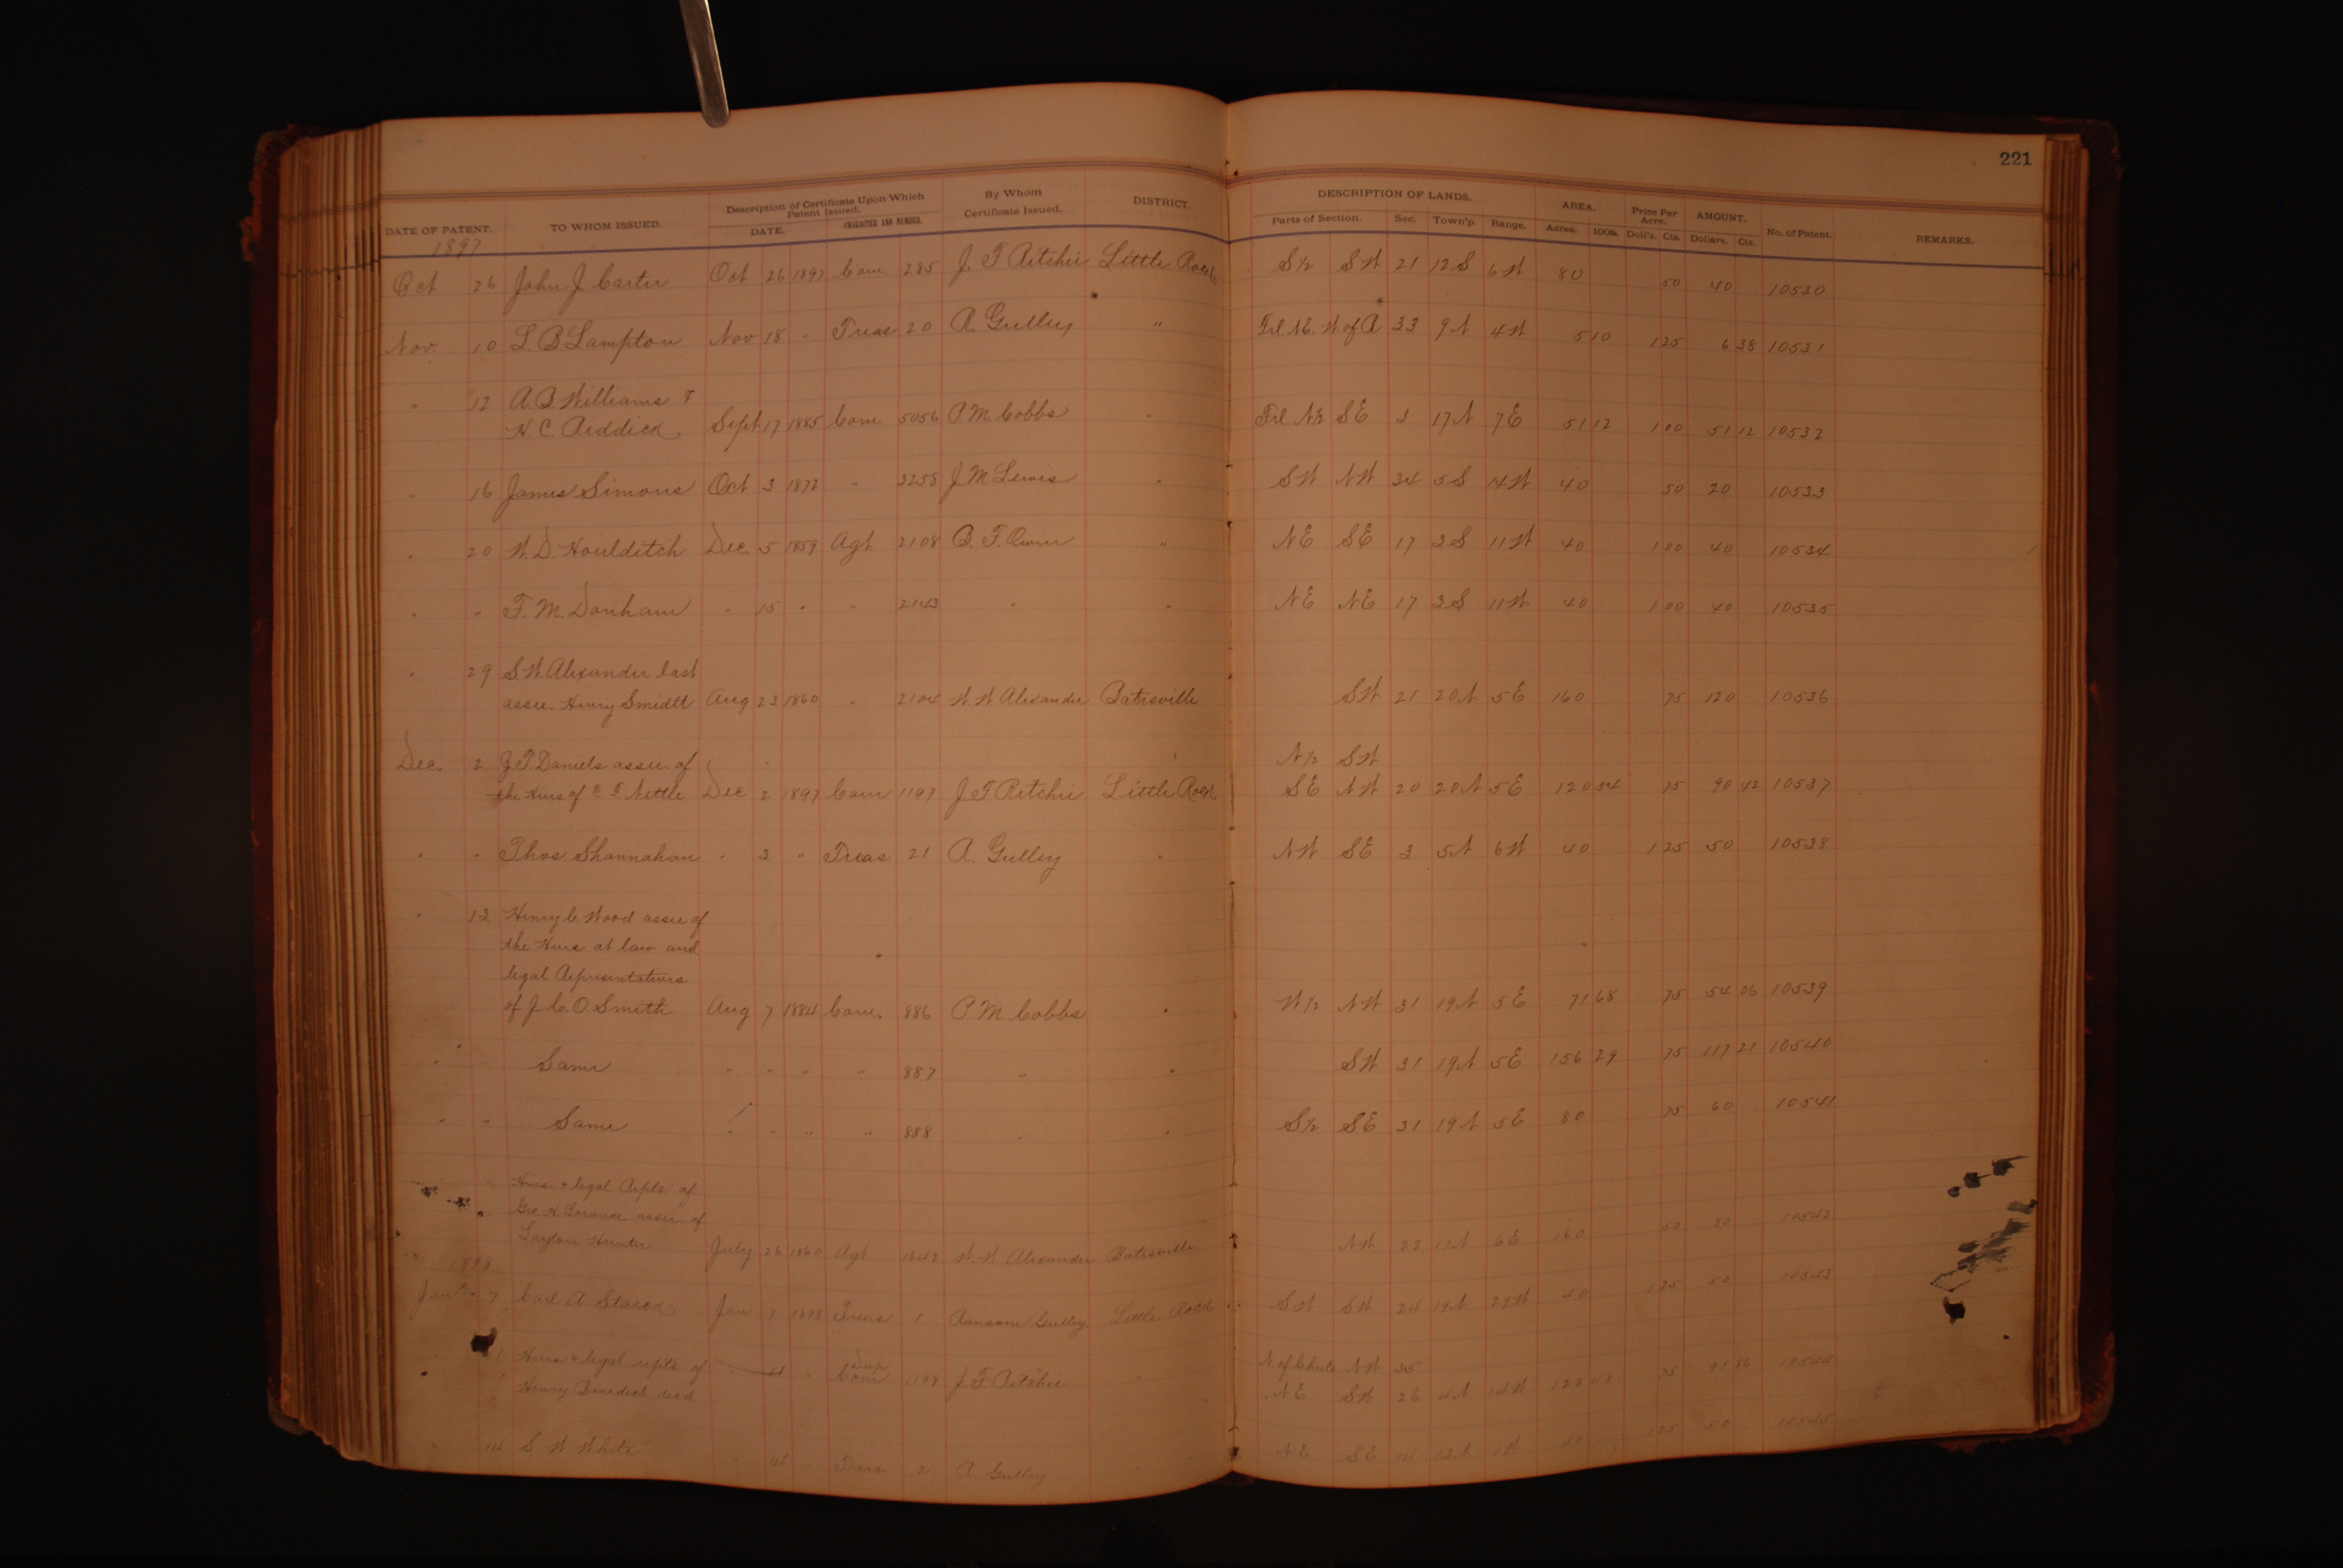 221
DATE OF PATENT. TO WHOM ISSUED. Description of Certificate Upon Which Patent Issued. DATE. CHARACTER AND NUMBER. By Whom Certificate Issued. DISTRICT. DESCRIPTION OF LANDS. Parts of Section. Sec. Town'p. Range. AREA. Acres. 100ths. Price Per Acre. Doll's. Cts. AMOUNT. Dollars. Cts. No. of Patent. REMARKS.
1897
Oct 26 John J Carter Oct 26 1897 Com. 285 J. F. Ritchie Little Rock S½ SW 21 12S 6W 80 50 40 10530
Nov. 10 L. B Lampton Nov 18 " Treas 20 R. Gulley " Frl. NE. W of R 33 9N 4W 5 10 1 25 6 38 10531
" 12 A. B Williams &
H C. Riddick Sept 17 1885 Com. 5056 P. M Cobbs " Frl N½ SE 3 17N 7E 51 12 1 00 51 12 10532
" 16 James Simons Oct 3 1872 " 3258 J M Lewis " SW NW 34 5S 14W 40 50 20 10533
" 20 W. D. Houlditch Dec. 5 1859 Agt. 2108 B. F. Owen " NE SE 17 3S 11W 40 1 00 40 10534
" " F. M. Donham " 15 " " 2143 " " NE NE 17 3S 11W 40 1 00 40 10535
" 29 S. W. Alexander last
assee. Henry Smidtt Aug 23 1860 " 2104 W. W Alexander Batesville SW 21 20N 5E 160 75 120 10536
Dec. 2 J T Daniels assee of N½ SW
the Heirs of C. F. Nettle Dec 2 1897 Com 1197 J F Ritchie Little Rock SE NW 20 20N 5E 120 54 75 90 42 10537
" " Thos. Shannahan " 3 " Treas 21 R. Gulley " NW SE 3 5N 6W 40 1 25 50 10538
" 13 Henry C. Wood assee of
the Heirs at law and
legal Representatives
of J. C. O. Smith Aug 7 1884 Com. 886 P. M Cobbs " W½ NW 31 19N 5E 71 68 75 54 06 10539
" " Same " " " " 887 " " SW 31 19N 5E 156 29 75 117 21 10540
" " Same " " " " 888 " " S½ SE 31 19N 5E 80 75 60 10541
Heirs & legal Repts of
Geo. H. Lorance assee of
Layton Hunter July 26 1860 Agt 1642 W. W Alexander Batesville NW 22 17N 6E 160 50 80 10542
1898
Jany 7 Carl A Starck Jan 7 1898 Treas 1 Ransom Gulley Little Rock SW SW 24 19N 29W 40 1 25 50 10543
11 Heirs & legal repts of 11 " Dup Com 1198 J. F. Ritchie " N of Chute NW 35 75 91 86 10544
Henry Benedict decd NE SW 26 4N 14W 122 48
" 14 S W White " 14 " Treas 2 R. Gulley " NE SE 14 13N 1W 40 1 25 50 10545